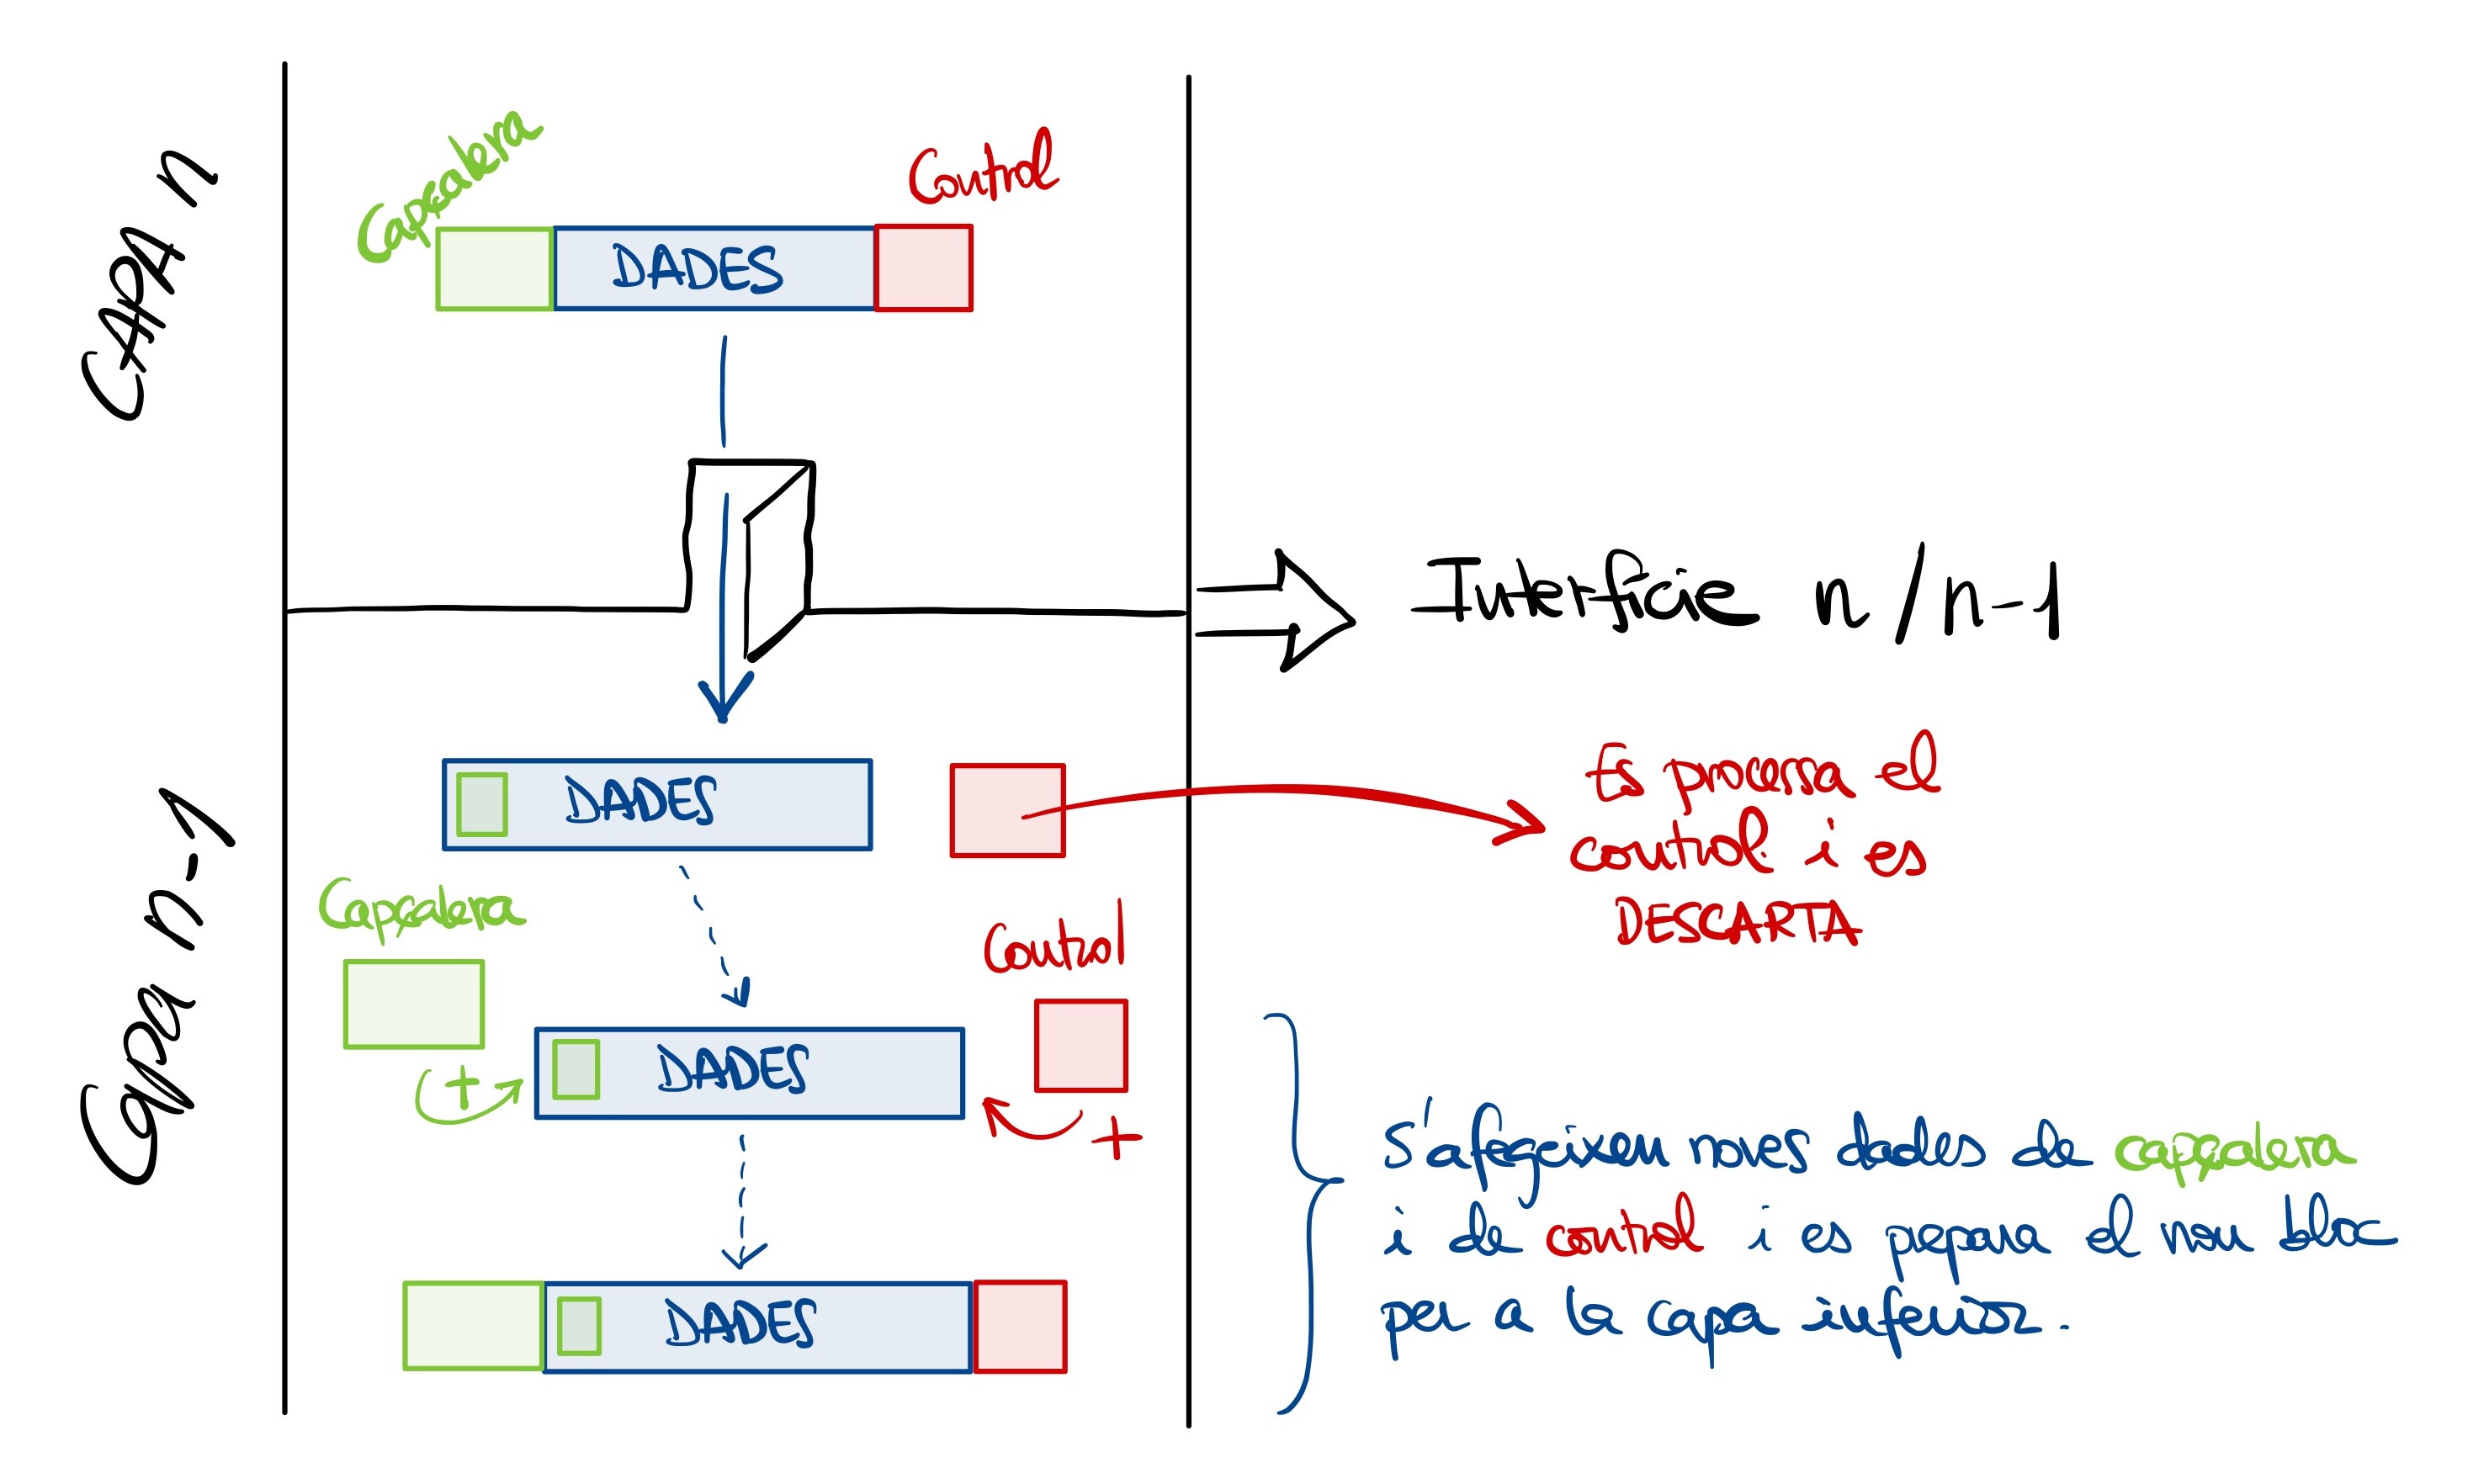 CAPA n
Capçalera
Control
DADES
Interfície n/n-1
DADES
Es processa el
control i es
DESCARTA
Capa n-1
Capçalera
Control
+
DADES
+
S'afegeixen noves dades de capçalera
i de control i es prepara el nou bloc
per a la capa inferior.
DADES